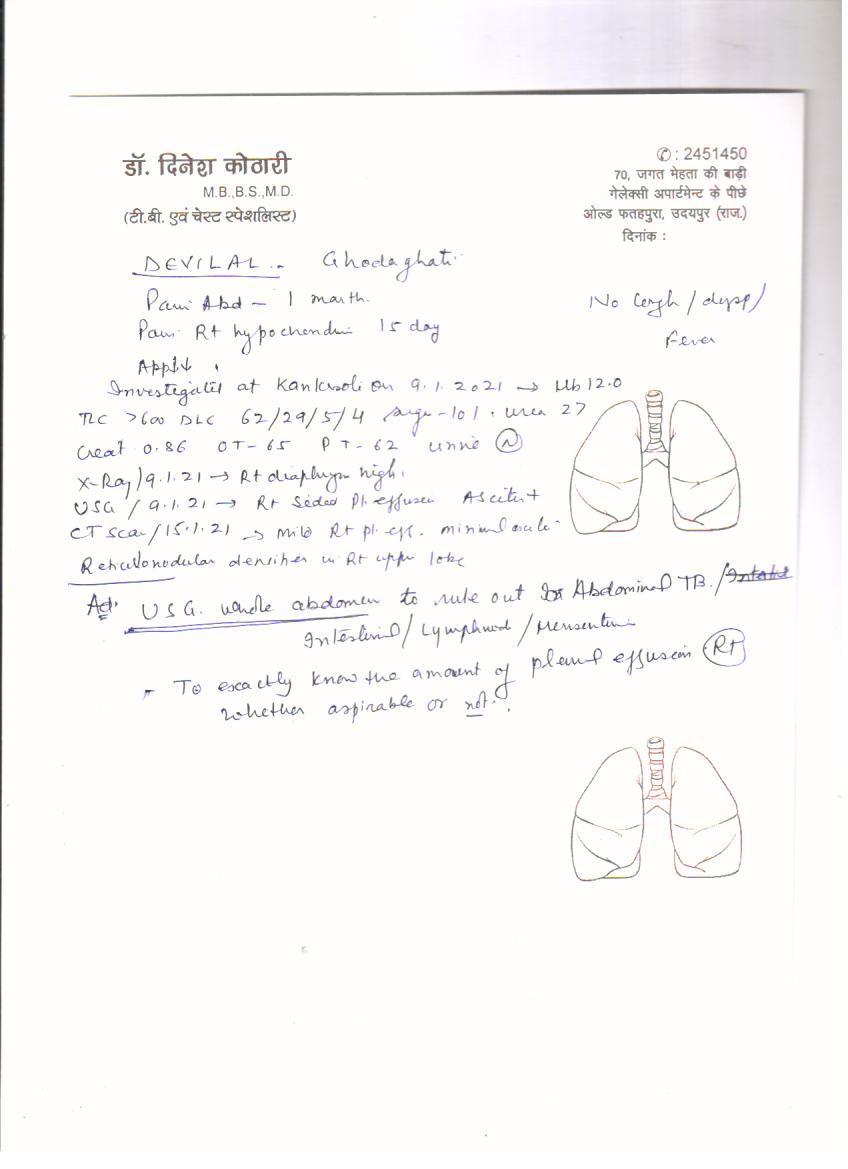 डॉ. दिनेश कोठारी
M.B.,B.S.,M.D.
(टी.बी. एवं चेस्ट स्पेशलिस्ट)
✆ : 2451450
70, जगत मेहता की बाड़ी
गेलेक्सी अपार्टमेन्ट के पीछे
ओल्ड फतहपुरा, उदयपुर (राज.)
दिनांक :
DEVILAL Ghodaghati
Pain Abd - 1 month.
Pain Rt hypochondri 15 day
No Cough / dysp /
Fever
App↓
Investigated at Kankroli on 9.1.2021 → Hb 12.0
TLC 7600 DLC 62/29/5/4 sugar-101, urea 27
Creat 0.86 OT-65 PT-62 urine (N)
X-Ray/9.1.21 → Rt diaphragm high.
USG / 9.1.21 → Rt Sided Pl. effusion Ascites +
CT Scan/15.1.21 → Mild Rt pl. eff. minimal ascite
Reticulonodular densities in Rt upper lobe
Ad. USG. whole abdomen to rule out Abdominal TB. /
Intestinal / Lymphnod / Mensentri
- To exactly know the amount of pleural effusion (Rt)
whether aspirable or not.